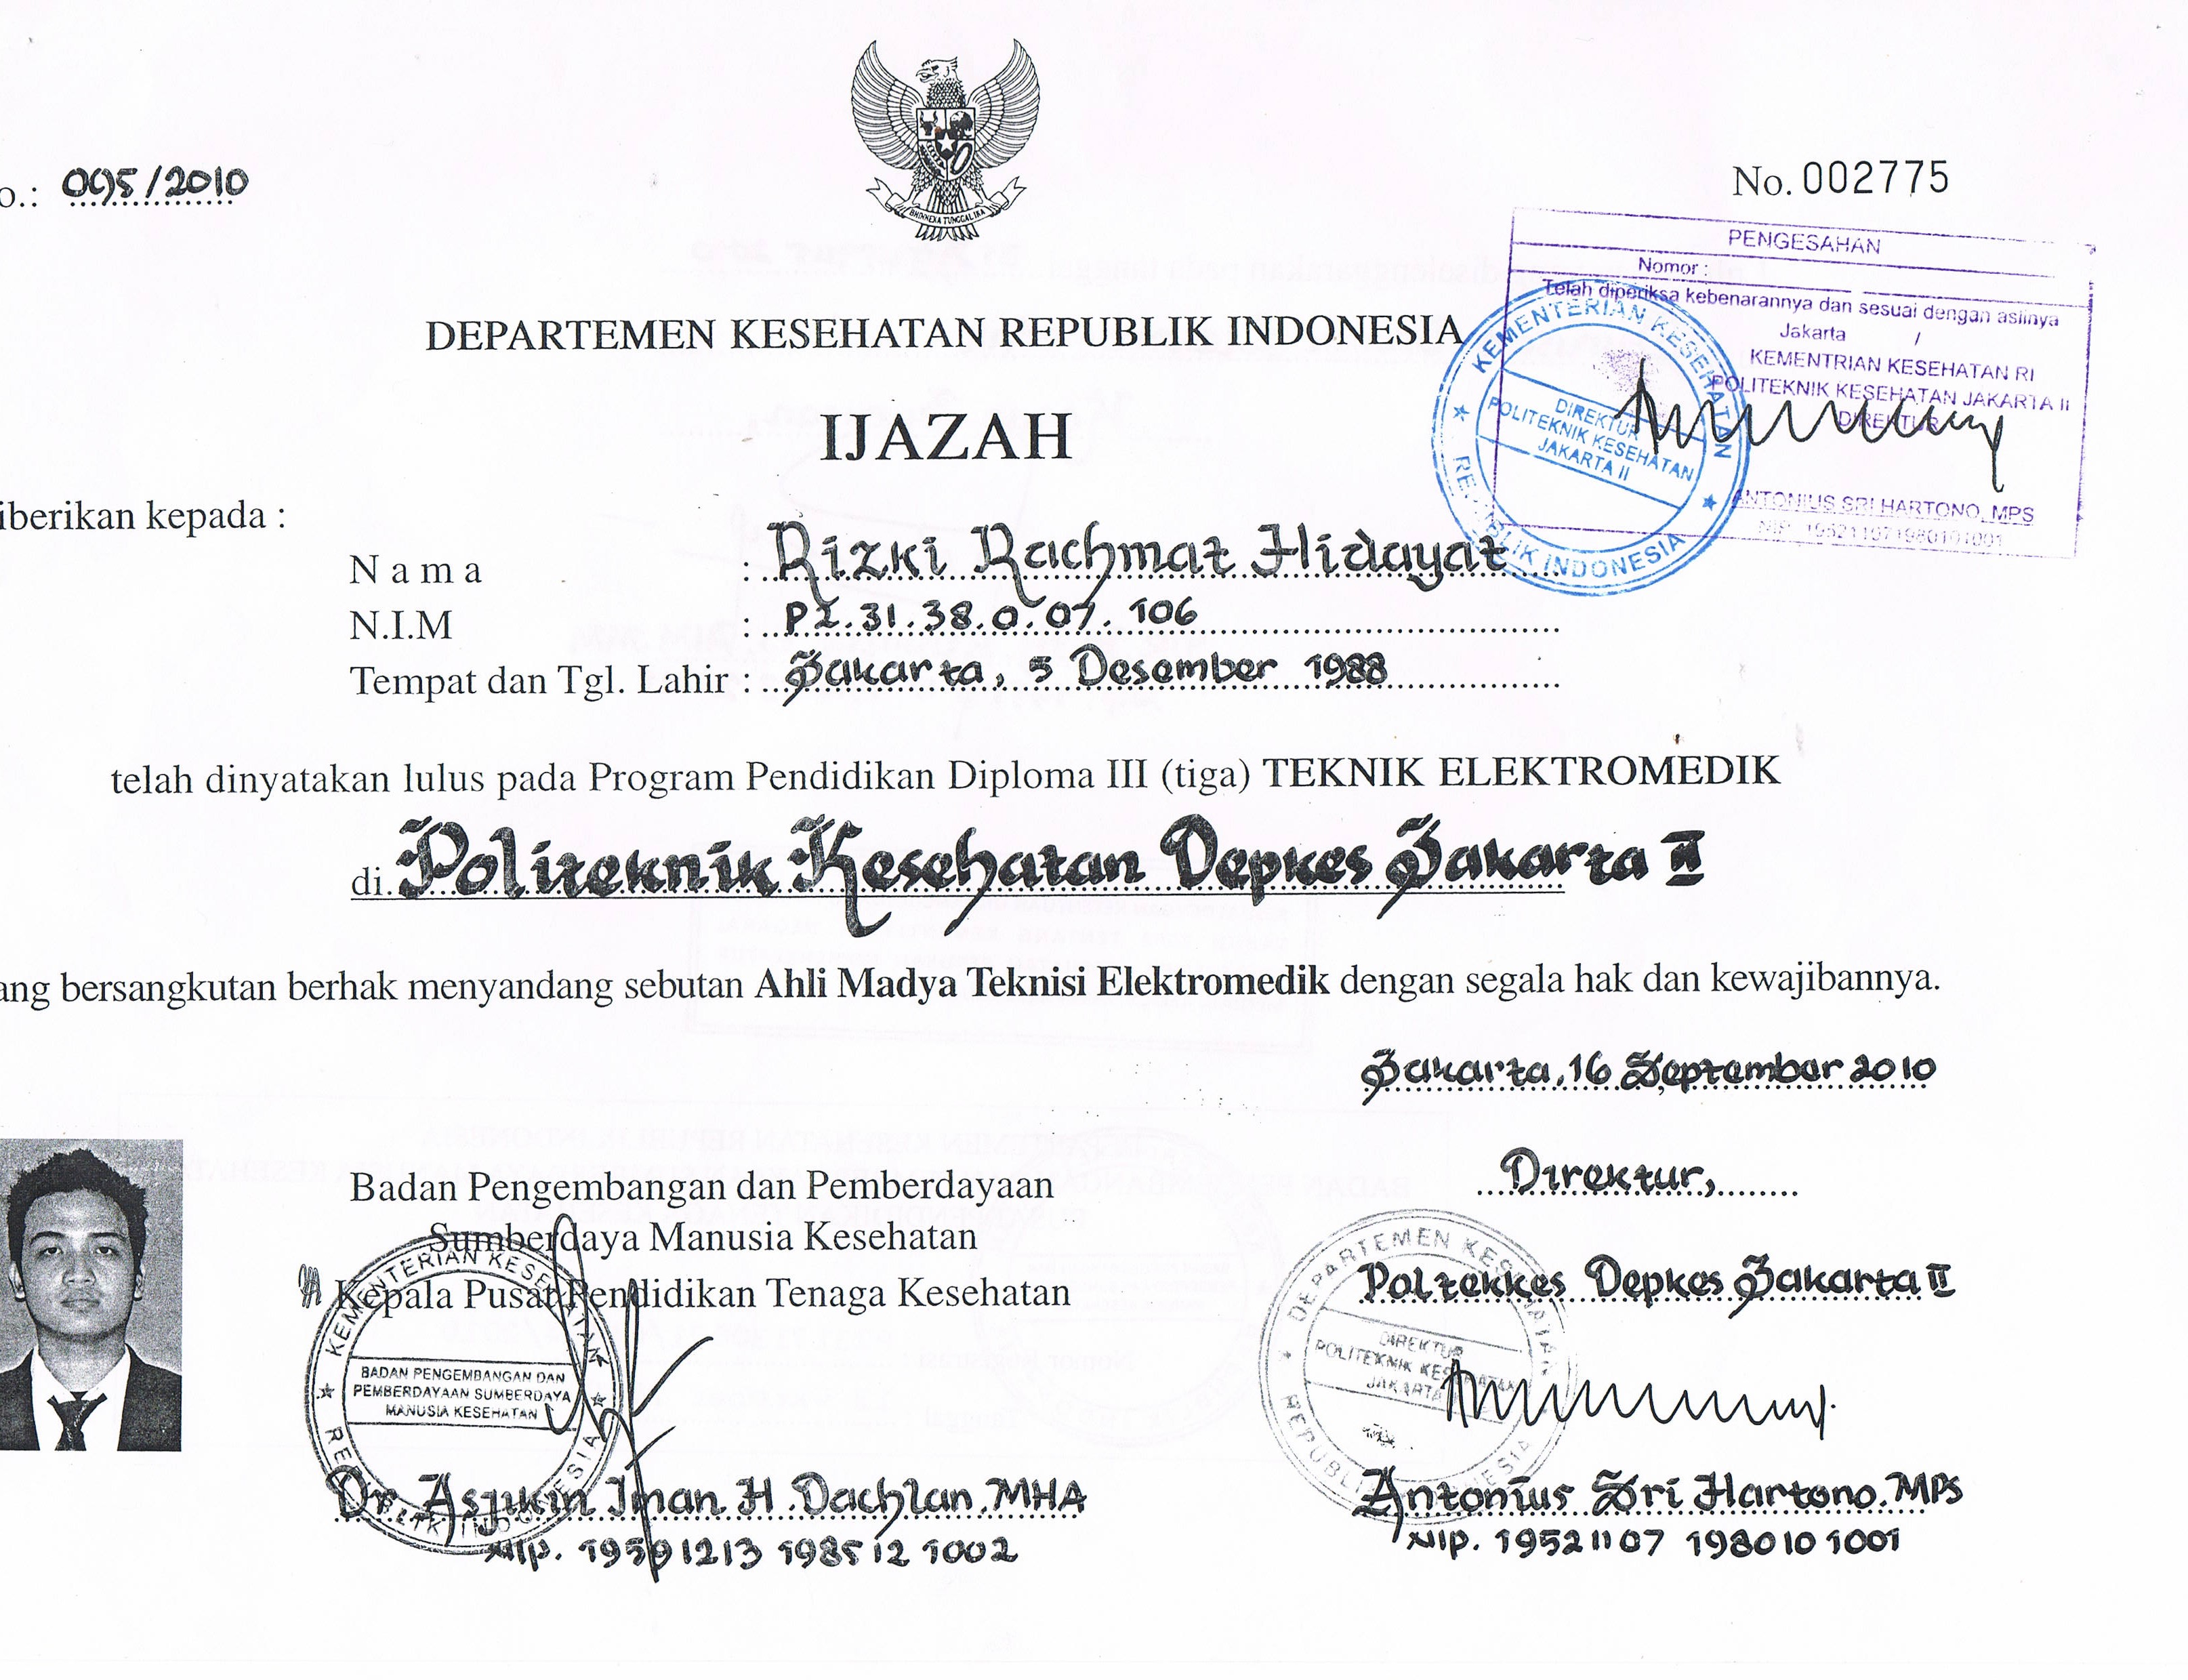 BHINNEKA TUNGGAL IKA
o.: 095/2010
No. 002775
PENGESAHAN
Nomor :
Telah diperiksa kebenarannya dan sesuai dengan aslinya
Jakarta /
KEMENTRIAN KESEHATAN RI
POLITEKNIK KESEHATAN JAKARTA II
DIREKTUR
ANTONIUS SRI HARTONO, MPS
NIP. 195211071980101001
KEMENTERIAN KESEHATAN
DIREKTUR
POLITEKNIK KESEHATAN
JAKARTA II
REPUBLIK INDONESIA
DEPARTEMEN KESEHATAN REPUBLIK INDONESIA
IJAZAH
iberikan kepada :
Nama : Rizki Rachmat Hidayat
N.I.M : P2.31.38.0.07.106
Tempat dan Tgl. Lahir : Jakarta, 5 Desember 1988
telah dinyatakan lulus pada Program Pendidikan Diploma III (tiga) TEKNIK ELEKTROMEDIK
di Politeknik Kesehatan Depkes Jakarta II
ang bersangkutan berhak menyandang sebutan Ahli Madya Teknisi Elektromedik dengan segala hak dan kewajibannya.
Jakarta, 16 September 2010
Badan Pengembangan dan Pemberdayaan
Sumberdaya Manusia Kesehatan
Kepala Pusat Pendidikan Tenaga Kesehatan
KEMENTERIAN KESEHATAN
BADAN PENGEMBANGAN DAN
PEMBERDAYAAN SUMBERDAYA
MANUSIA KESEHATAN
REPUBLIK INDONESIA
Dr. Asjikin Iman H. Dachlan, MHA
Nip. 19591213 198512 1002
Direktur,
Poltekkes Depkes Jakarta II
DEPARTEMEN KESEHATAN
DIREKTUR
POLITEKNIK KESEHATAN
JAKARTA
REPUBLIK INDONESIA
Antonius Sri Hartono, MPS
Nip. 19521107 198010 1001